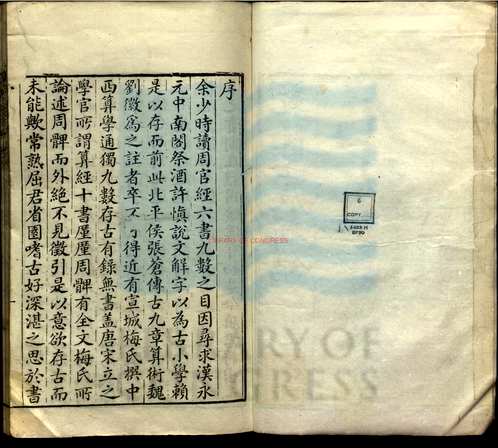 序
余少時讀周官經六書九數之目因尋求漢永
元中南閣祭酒許愼說文解字以為古小學賴
是以存而前此北平侯張蒼傳古九章算術魏
劉徽為之註者卒不可得近有宣城梅氏撰中
西算學通獨九數存古有錄無書盖唐宋立之
學官所謂算經十書厪厪周髀有全文梅氏所
論述周髀而外絶不見徵引是以意欲存古而
未能歟常熟屈君省園嗜古好深湛之思於書
LIBRARY OF CONGRESS
6
COPY
LIBRARY OF
CONGRESS